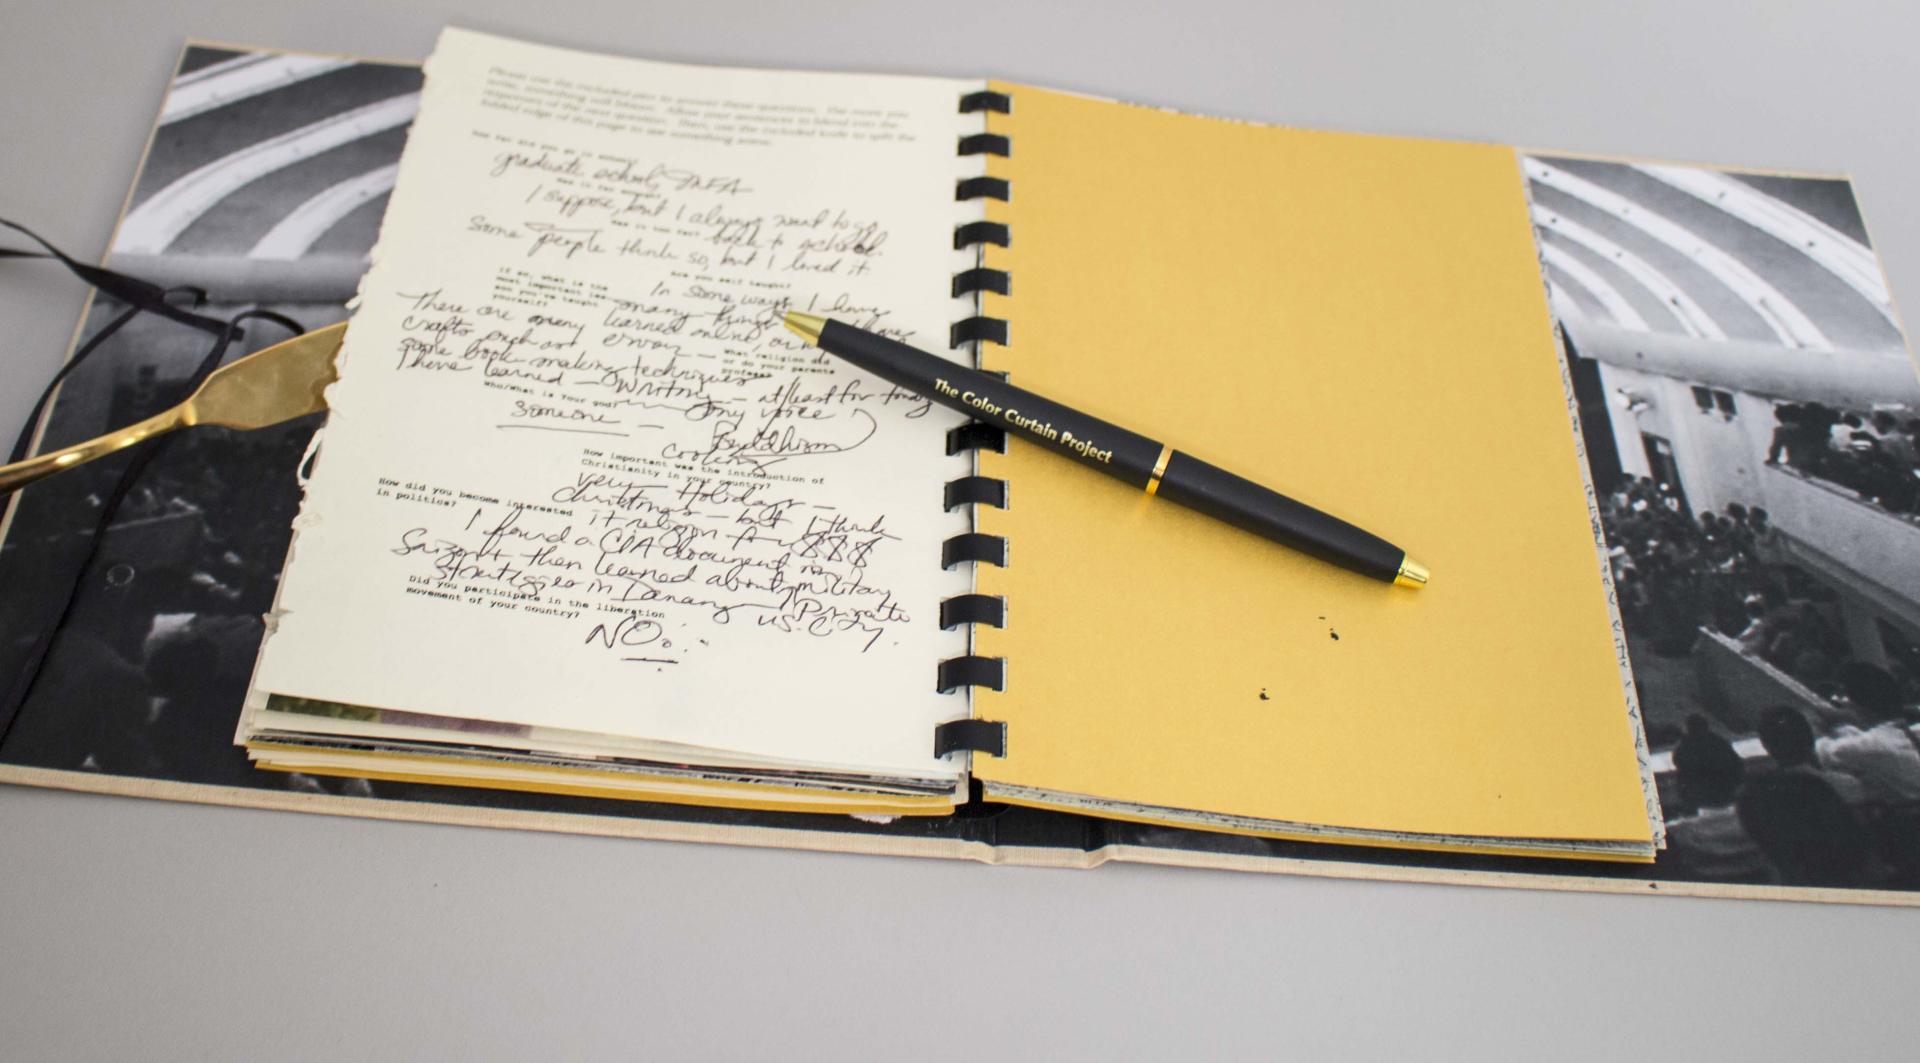 Please use the included pen to answer these questions. The more you
write, something will bloom. Allow your sentences to blend into the
responses of the next question. Then, use the included knife to split the
folded edge of this page to see something more.
How far did you go in school?
graduate school, MFA
Was it far enough?
I suppose, but I always want to go
back to school.
Was it too far?
Some people think so, but I loved it.
Are you self taught?
In some ways I have
If so, what is the
most important les-
son you've taught
yourself?
many things
There are many learned online,
crafts such as
some book making techniques
I have learned — Writing — at least for today
my voice
What religion did
or do your parents
profess?
Buddhism
Who/What is Your god?
someone —
cooling
How important was the introduction of
Christianity in your country?
very — Holidays —
Christmas — but I think
it religion for $$$
How did you become interested
in politics?
I found a CIA document in
Saigon + then learned about military
strategies in Danang — Private
US. City.
Did you participate in the liberation
movement of your country?
NO
The Color Curtain Project